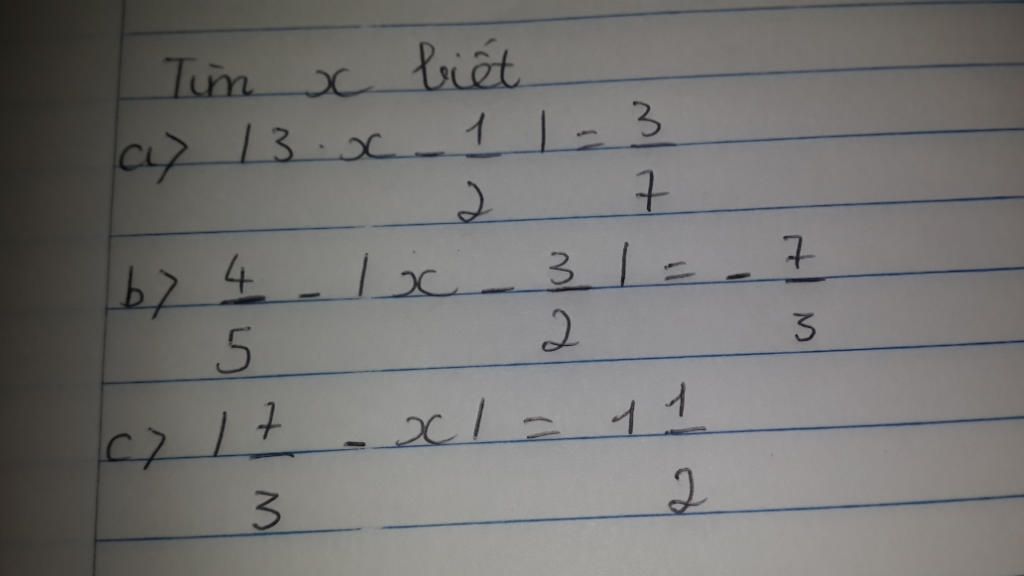 Tìm x biết
a) |3·x - 1/2| = 3/7
b) 4/5 - |x - 3/2| = - 7/3
c) |7/3 - x| = 1 1/2